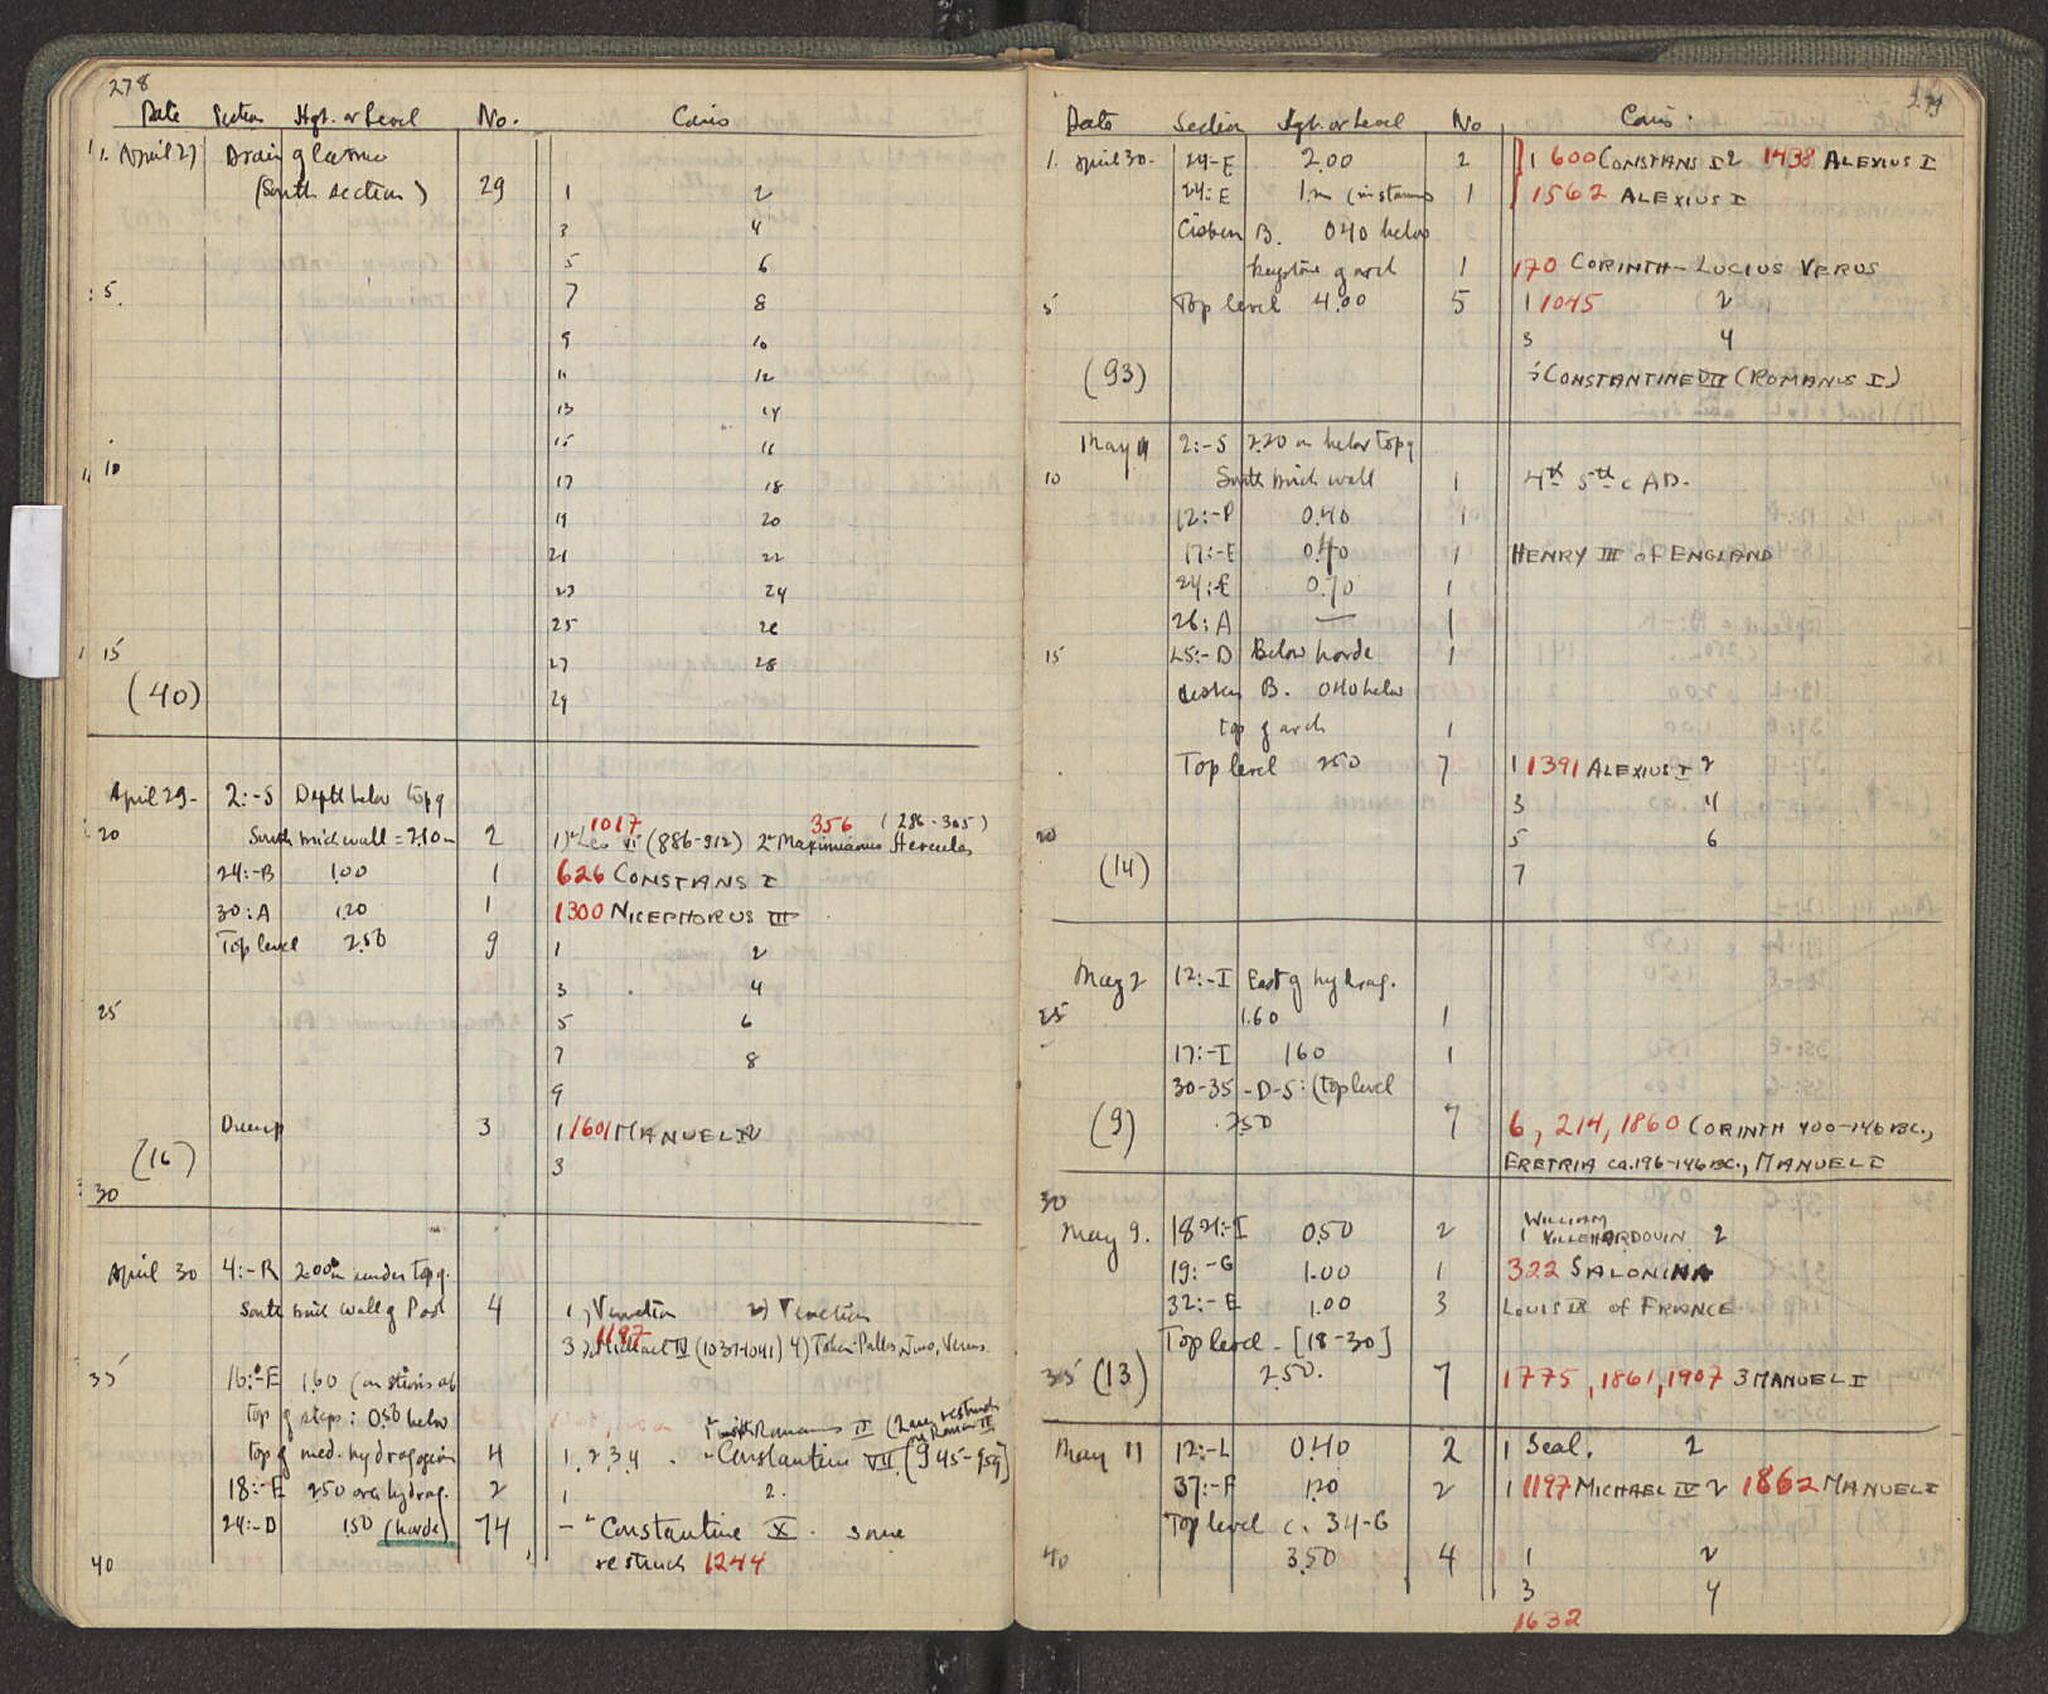 278
Date Section Hgt. or Level No. Coins
1. April 27 Drain g
(South section) 29 1 2
3 4
5 6
5. 7 8
9 10
11 12
13 14
15 16
10 17 18
19 20
21 22
23 24
25 26
15 27 28
(40) 29
April 29- 2:-S Depth below top g
1017 356 (286-305)
20 South brick wall = 2.10m 2 1) Leo VI (886-912) 2 Maximianus Hercules
24:-B 1.00 1 626 CONSTANS I
30:A 1.20 1 1300 NICEPHORUS III
Top level 2.50 9 1 2
3 4
25 5 6
7 8
9
Dump 3 1 1601 MANUEL I 2
(16) 3
30
April 30 4:-R 2.00m under top g.
South brick wall g Post 4 1) Venetian 2) Venetian
1197
3) Michael IV (1037-1041) 4) Token-Pallas, Juno, Venus.
35 16:-E 1.60 (on stairs at
top g steps: 0.50 below with Romanus II (2 are restruck on Roman II
top g med. hydragogion 4 1, 2, 3, 4 - Constantine VII (945-959)
18:-E 2.50 over hydrag. 2 1 2.
24:-D 1.50 (horde) 74 - Constantine X. some
40 restruck 1244
279
Date Section Hgt. or Level No Coins.
1. April 30- 24-E 2.00 2 1 600 CONSTANS I 2 1438 ALEXIUS I
24:E 1 m 1 1562 ALEXIUS I
Cistern B. 0.40 below
keystone g arch 1 170 CORINTH - LUCIUS VERUS
5 Top level 4.00 5 1 1045 2
3 4
(93) 5 CONSTANTINE VII (ROMANUS I)
May 1 2:-S 2.20 m below top g
10 South brick wall 1 4th 5th c AD.
12:-P 0.40 1
17:-E 0.40 1 HENRY III of ENGLAND
24:-E 0.70 1
26:A — 1
15 25:-D Below horde 1
Cistern B. 0.40 below
top g arch 1
Top level 2.50 7 1 1391 ALEXIUS I 2
3 4
20 5 6
(14) 7
May 2 12:-I East g hydrag.
25 1.60 1
17:-I 1.60 1
30-35 -D-S: (top level
(9) 2.50 7 6, 214, 1860 CORINTH 400-146 BC.,
ERETRIA ca. 196-146 BC., MANUEL I
30
May 9. 18:-I 0.50 2 1 WILLIAM VILLEHARDOUIN 2
19:-G 1.00 1 322 SALONINA
32:-E 1.00 3 LOUIS IX of FRANCE
Top level - [18-30]
35 (13) 2.50. 7 1775, 1861, 1907 3 MANUEL I
May 11 12:-L 0.40 2 1 Seal. 2
37:-F 1.20 2 1 1197 MICHAEL IV 2 1862 MANUEL I
Top level c. 34-G
40 3.50 4 1 2
3 4
1632